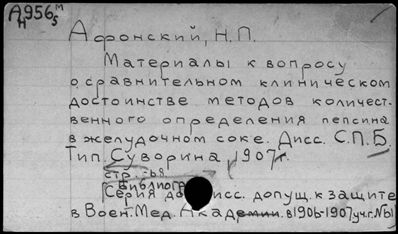 А956
Афонский, Н.П.
Материалы к вопросу
о сравнительном клиническом
достоинстве методов количест-
венного определения пепсина
в желудочном соке. Дисс. С.П.Б.
Тип. Суворина 1907г.
стр.
Библиогр
Серия дисс. допущ. к защите
в Воен. Мед. Академии. в 1906-1907 уч. г. №